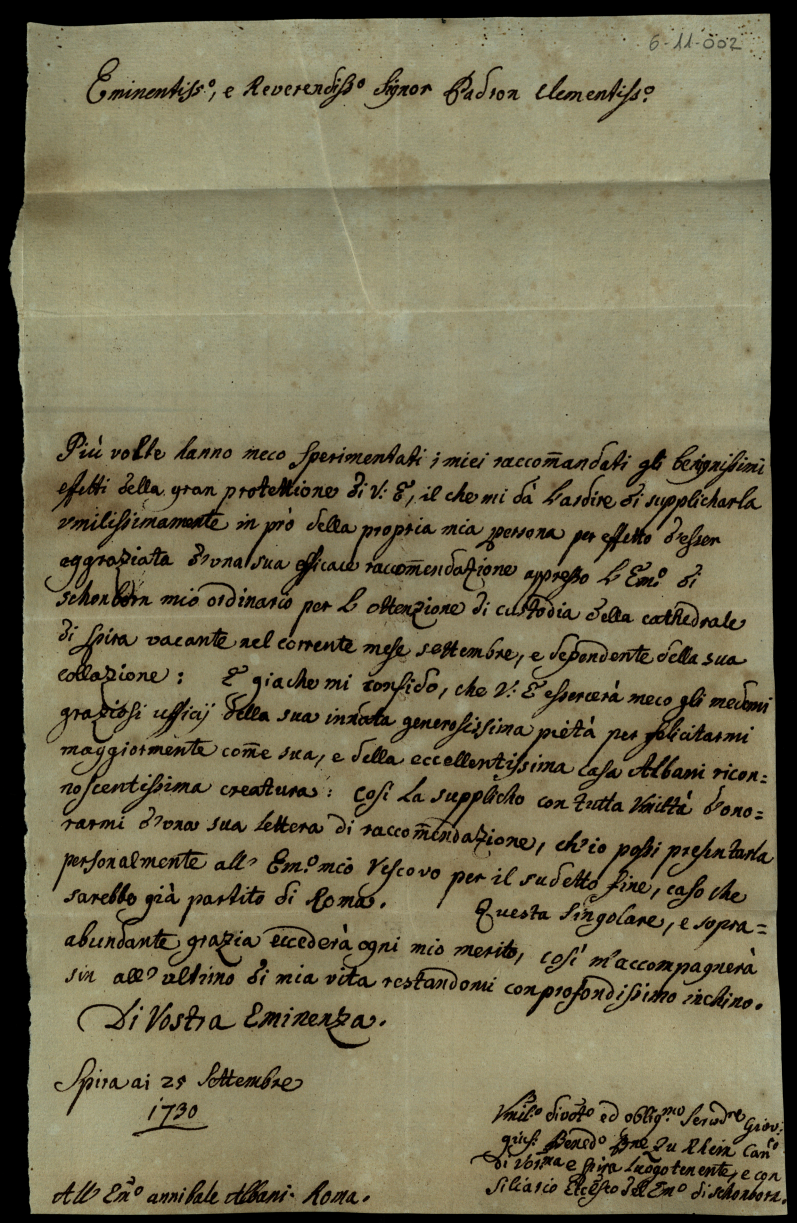 6-11-002
Eminentiss.º, e Reverendiss.º Signor Padron Clementiss.º
Più volte hanno meco sperimentati i miei raccom̃andati gli benignissimi
effetti della gran protettione di V: E, il che mi dà l'ardire di supplicharla
vmilissimamente in prò della propria mia persona per effetto d'esser
aggraziata d'vna sua efficace raccom̃endazione appresso l'Em.º di
schonborn mio ordinario per l'ottenzione di custodia della cathedrale
di spira vacante nel corrente mese settembre, e dependente della sua
collazione: E giache mi confido, che V: E essercerà meco gli medemi
graziosi ufficij della sua innata generosissima pietà per felicitarmi
maggiormente com̃e sua, e della eccellentissima casa Albani ricon=
noscentissima creatura: Così La supplicho con tutta Vmiltà d'ono=
rarmi d'vna sua lettera di raccom̃endazione, ch'io possi presentarla
personalmente all' Em.º mio Vescovo per il sudetto fine, caso che
sarebbe già partito di Roma. Questa singolare, e sopra=
abundante grazia eccederà ogni mio merito, così m'accompagnerà
sin all' vltimo di mia vita restandomi con profondissimo inchino.
Di Vostra Eminenza.
Spira ai 25 Settembre
1730
Vmil.º divotº ed oblig.mo Servd.re Giov:
Bened.º Zu Rhein Can.co
di e spira Luogotenente, e con
siliario dell'Em.º di schonborn.
All' Em.º annibale Albani. Roma.